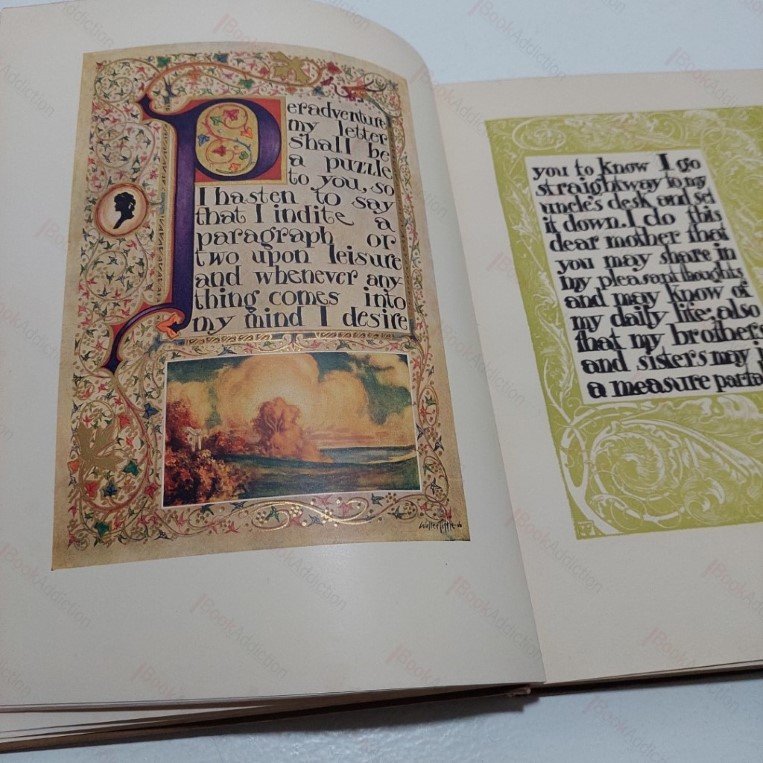 Peradventure
my letter
shall be
a puzzle
to you, so
I hasten to say
that I indite a
paragraph or
two upon leisure
and whenever any-
thing comes into
my mind I desire
you to know I go
straightway to my
uncle's desk and set
it down. I do this
dear mother that
you may share in
my pleasant thoughts
and may know of
my daily life; also
that my brothers
and sisters may
a measure
BookAddiction